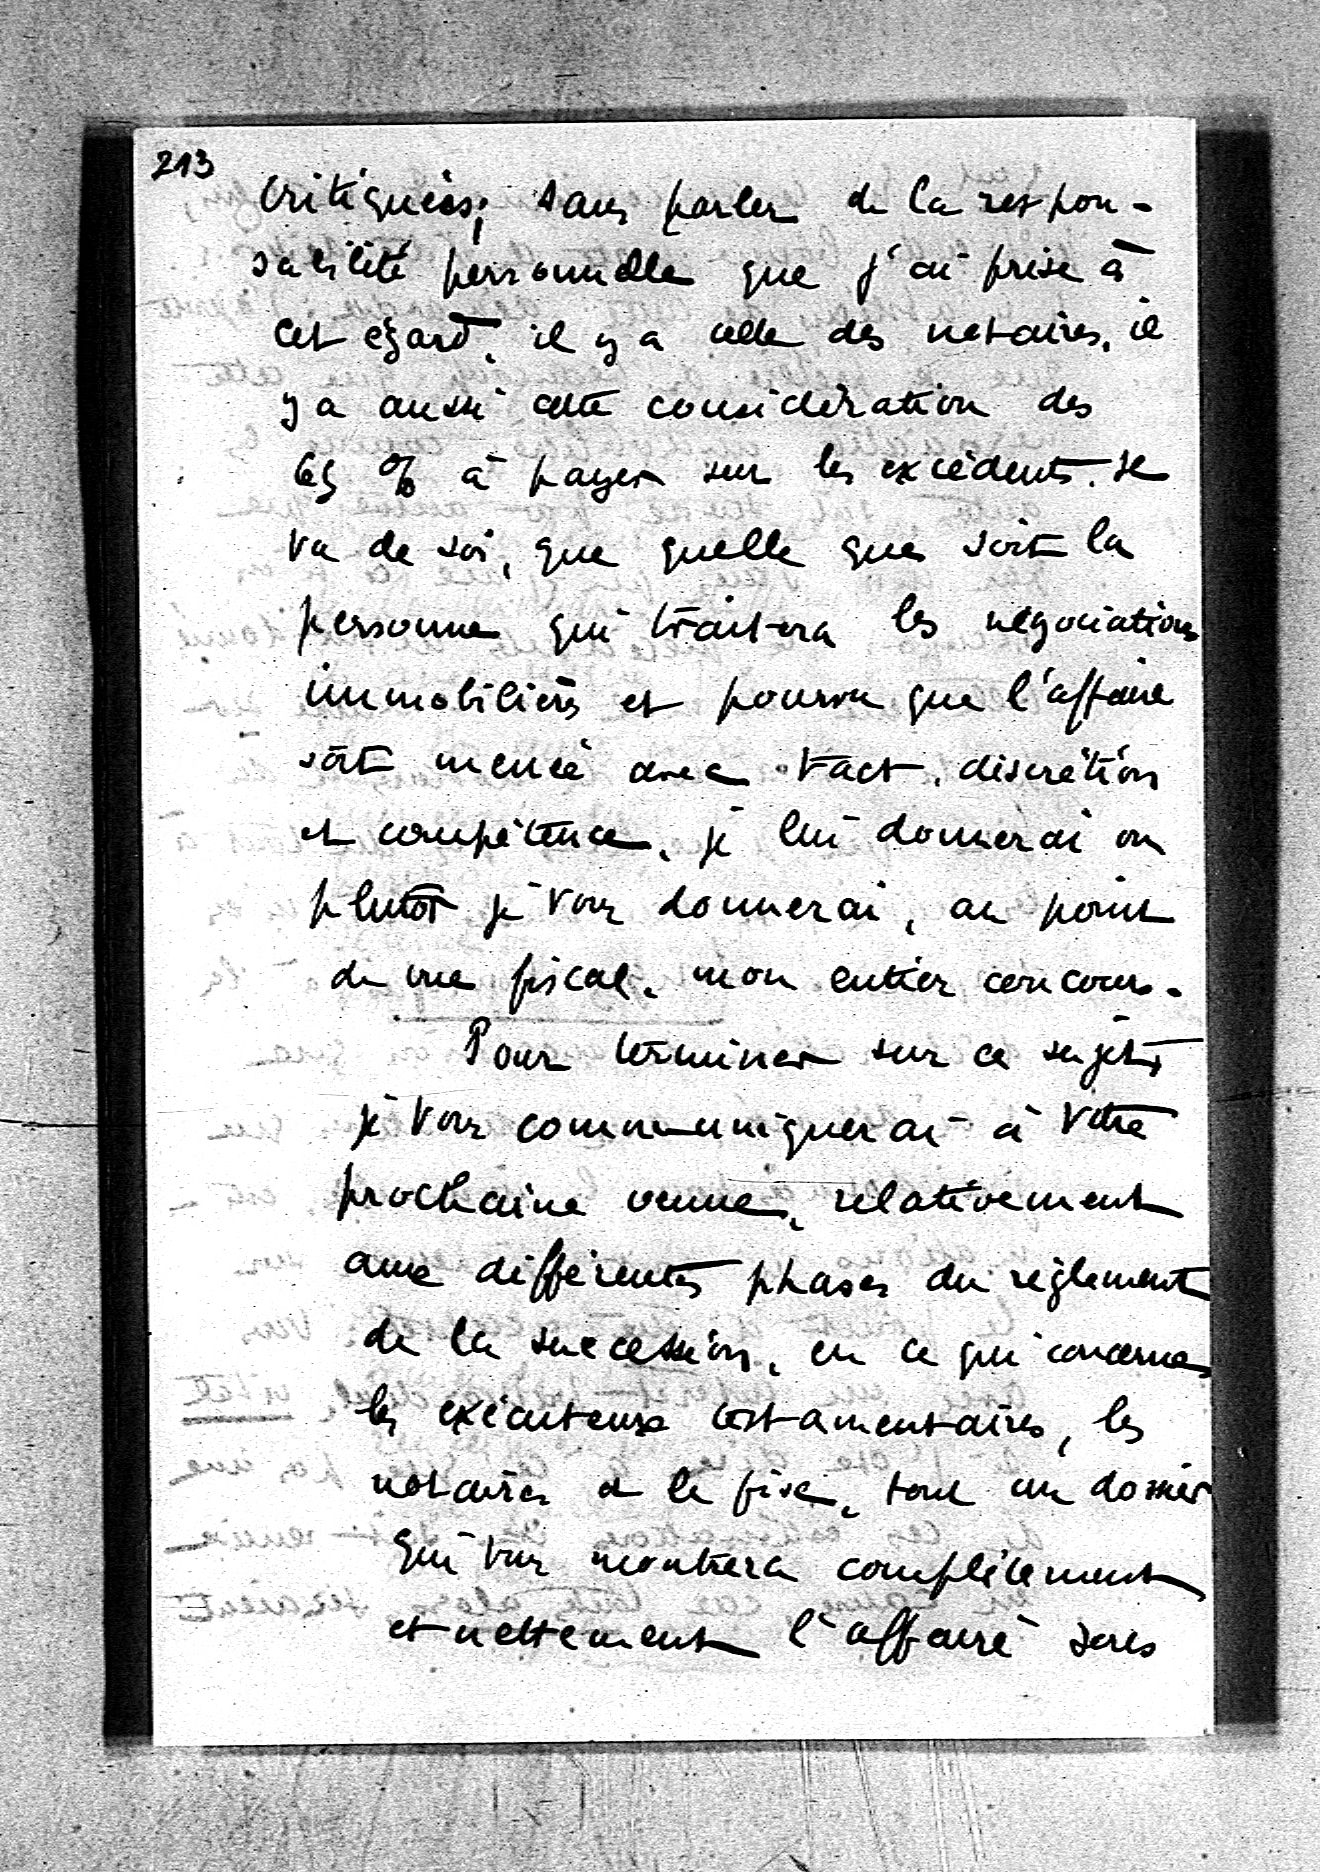 213
critiquées; sans parler de la respon-
sabilité personnelle que j'ai prise à
cet égard, il y a celle des notaires, il
y a aussi cette considération des
65 % à payer sur les excédents. Il
va de soi, que quelle que soit la
personne qui traitera les négociations
immobilières et pourvu que l'affaire
soit menée avec tact, discrétion
et compétence, je lui donnerai ou
plutôt je vous donnerai, au point
de vue fiscal, mon entier concours.
Pour terminer sur ce sujet,
je vous communiquerai à votre
prochaine venue, relativement
aux différentes phases du règlement
de la succession, en ce qui concerne
les exécuteurs testamentaires, les
notaires et le fisc, tout un dossier
qui vous montrera complètement
et nettement l'affaire sous